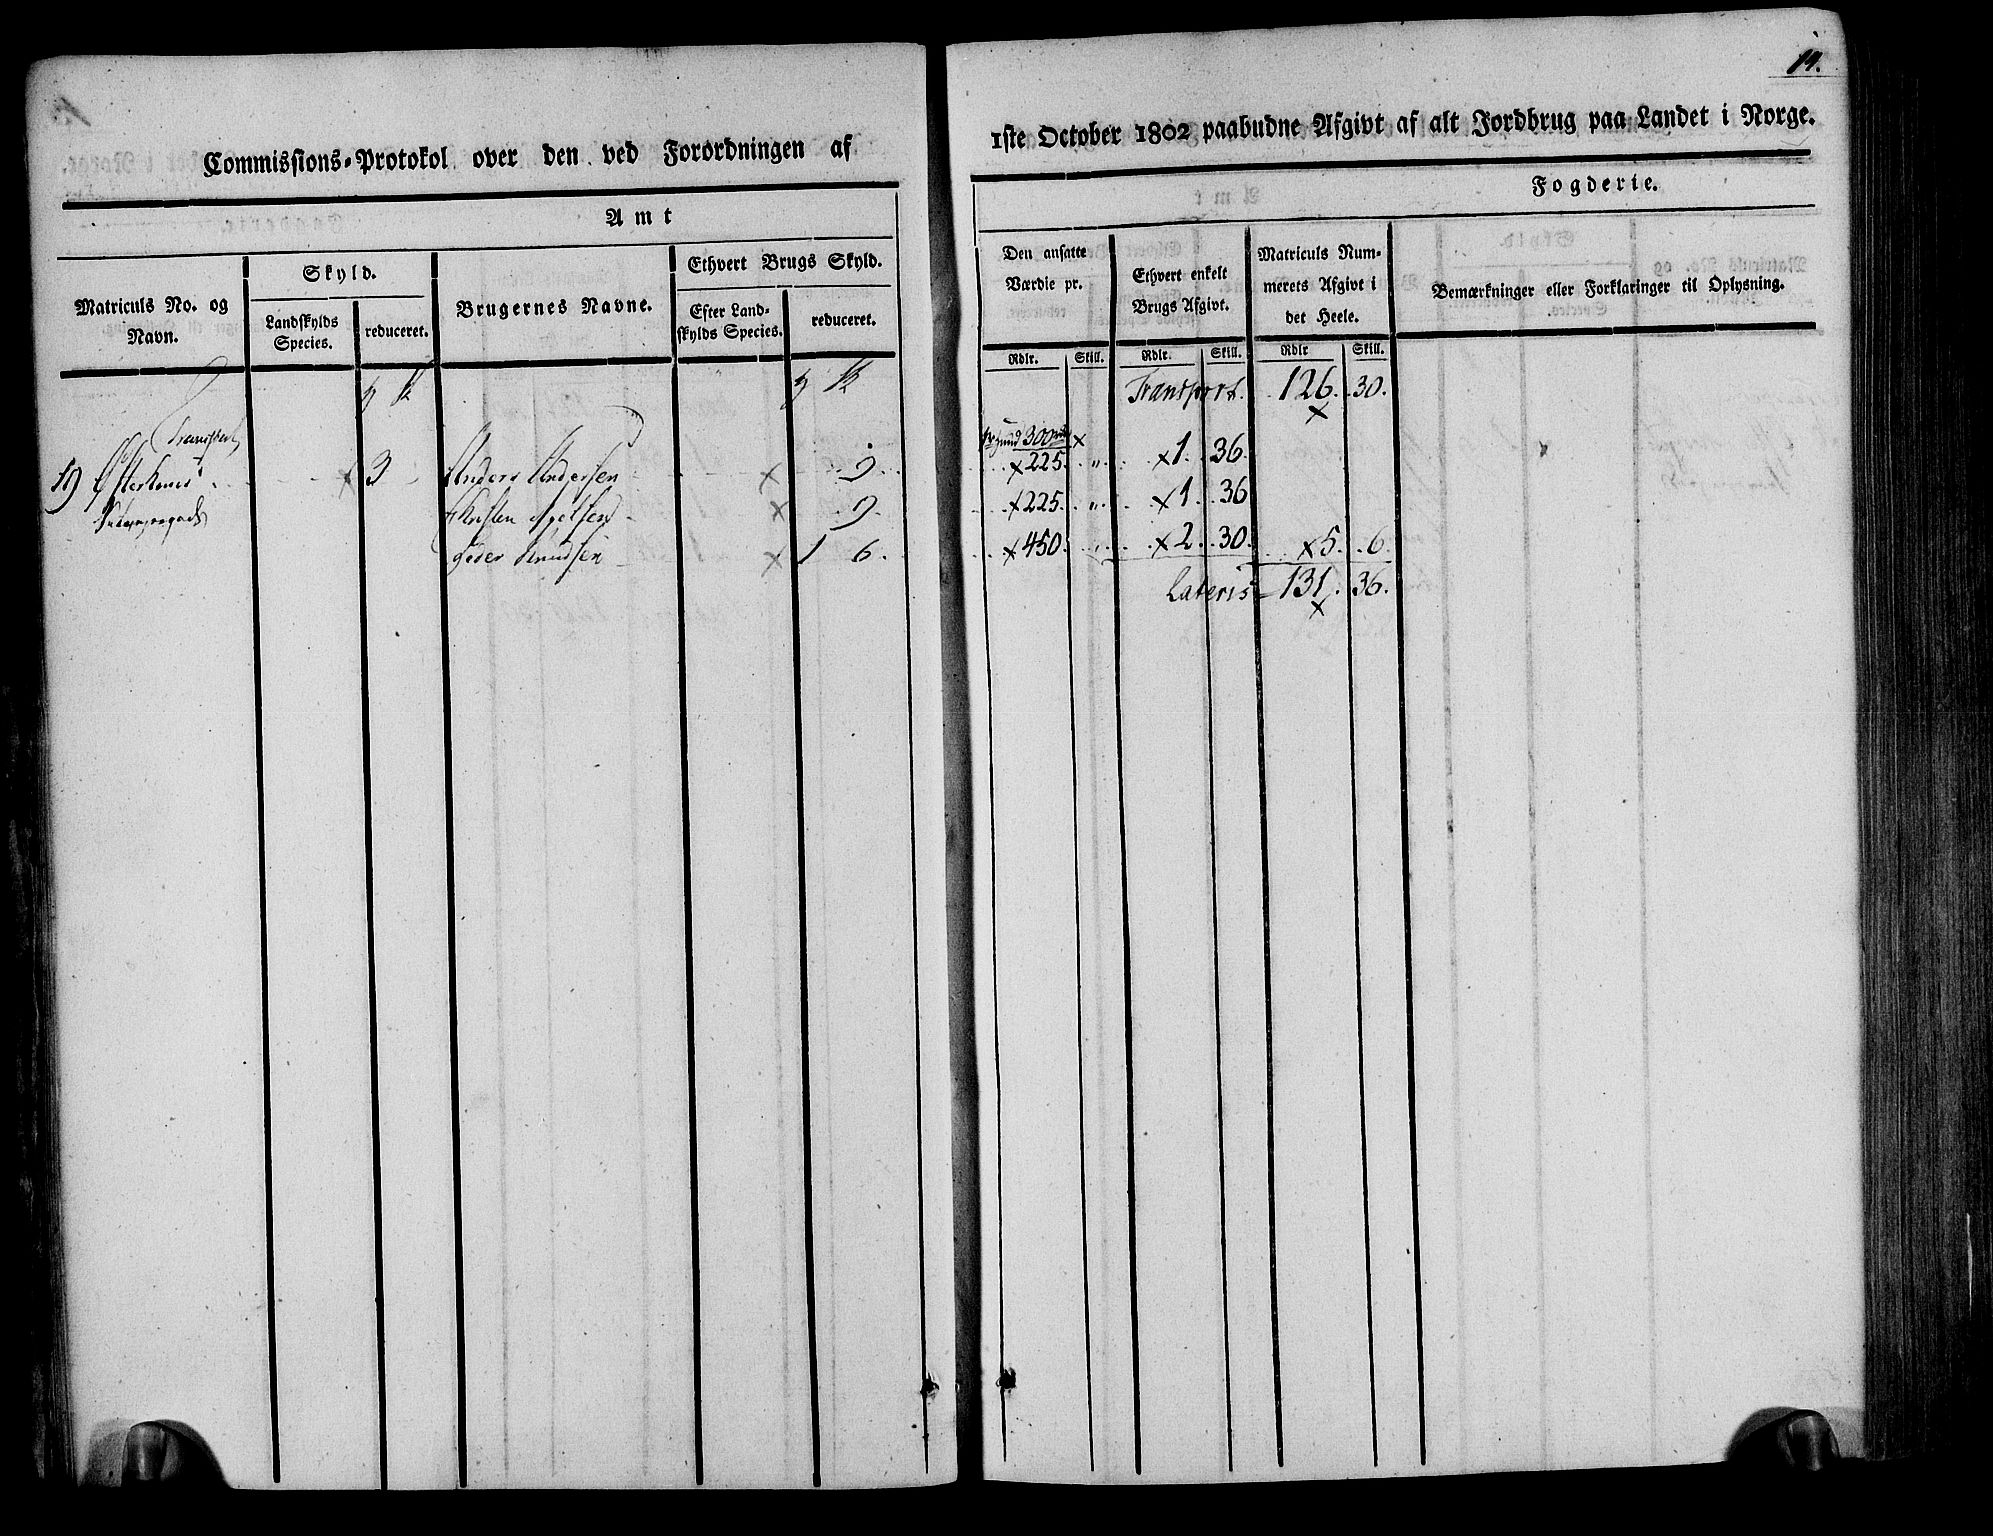 Commissions-Protokol over den ved Forordningen af
Amt
Matriculs No. og Navn.
Skyld.
Landskylds Species.
reduceret.
Brugernes Navne.
Ethvert Brugs Skyld.
Efter Landskylds Species.
reduceret.
Transport
19
3 Anders Andersen 9
9
Peder Knudsen 1 6.
14.
1ste October 1802 paabudne Afgivt af alt Jordbrug paa Landet i Norge.
Fogderie.
Den ansatte Værdie pr.
Ethvert enkelt Brugs Afgivt.
Matriculs Nummerets Afgivt i det Heele.
Bemærkninger eller Forklaringer til Oplysning.
Rdlr. Skill. Rdlr. Skill. Rdlr Skill.
Transport. 126. 30.
300
225. „ 1. 36.
225. „ 1. 36
450. „ 2. 30. 5. 6.
Lateris 131. 36.